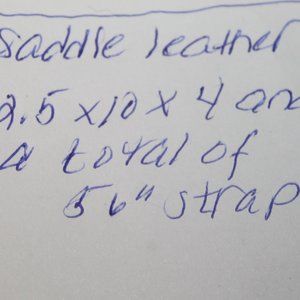 saddle leather
2.5 x 10 x 4 and
a total of
56" strap